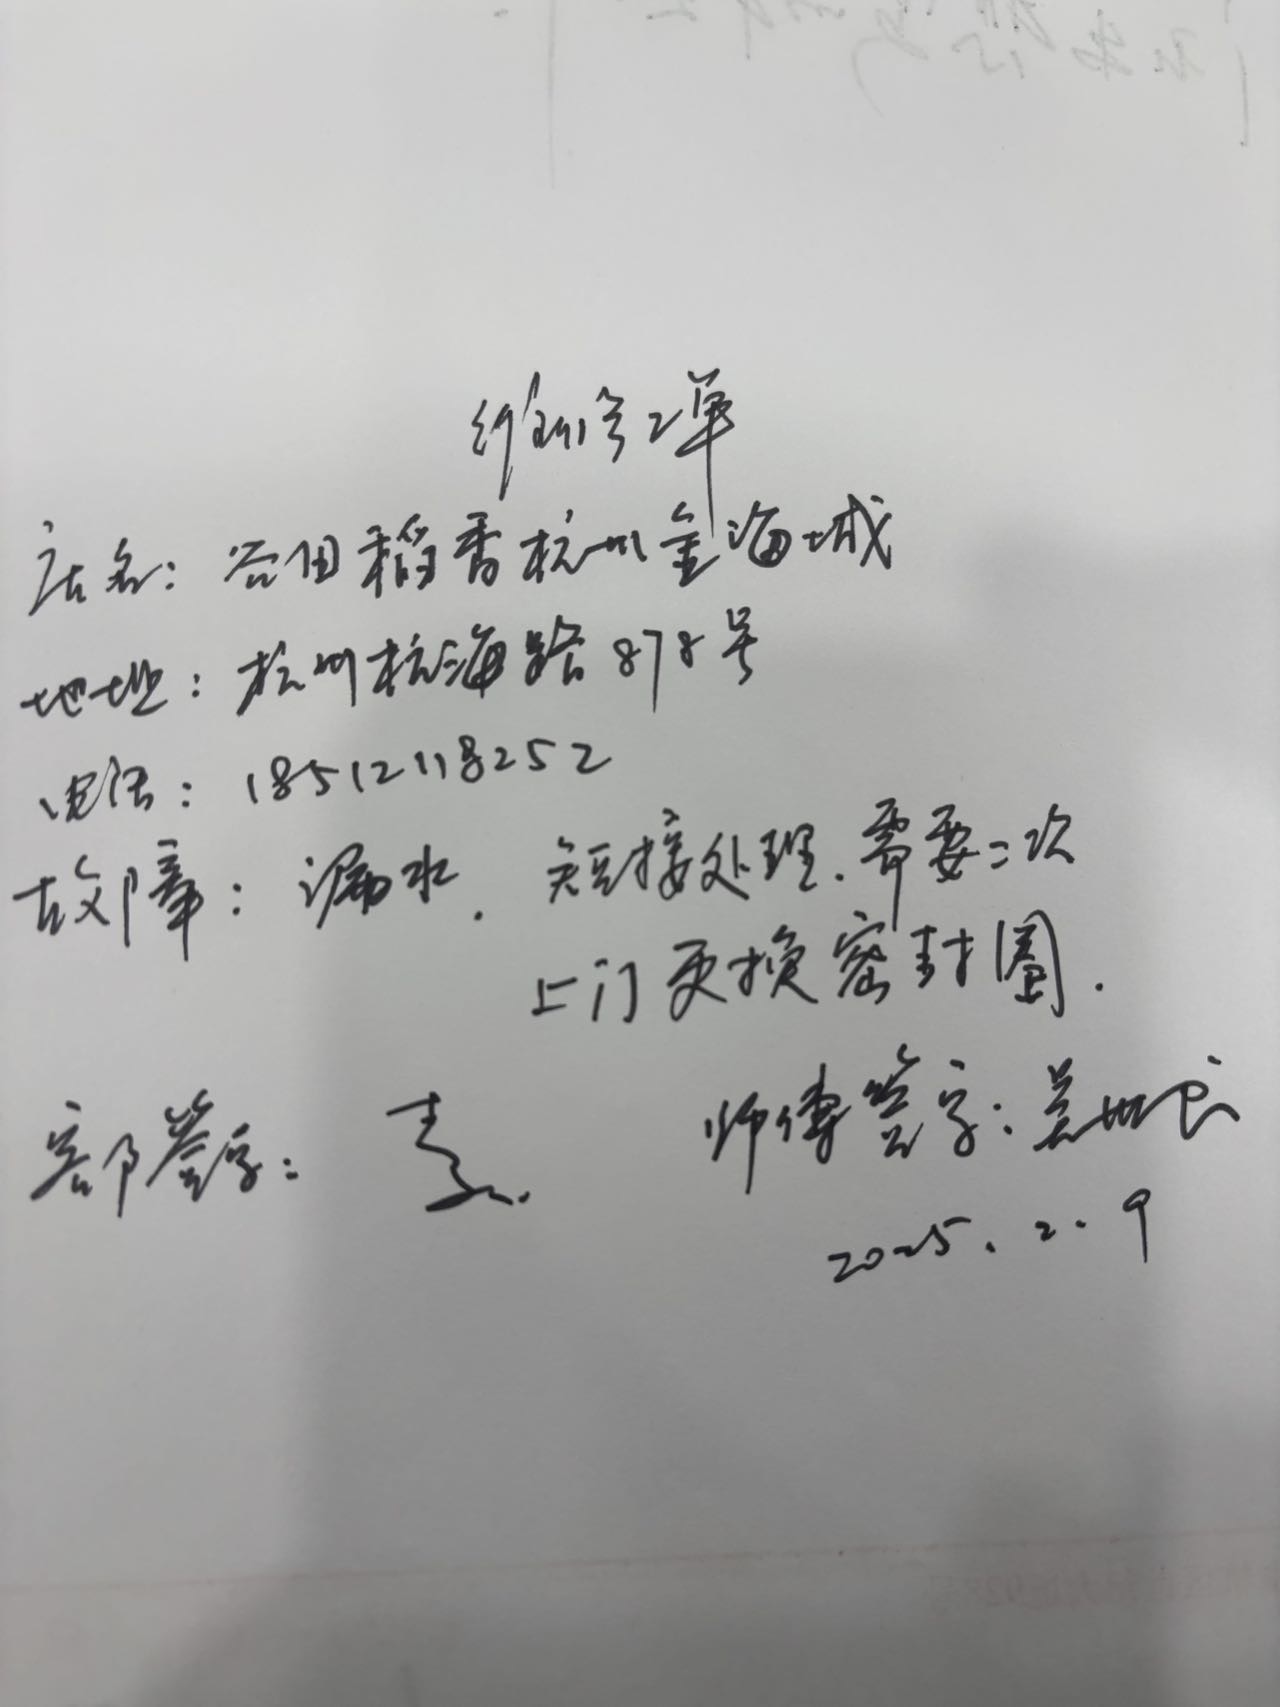 维修工单
店名：谷田稻香杭州金海城
地址：杭州杭海路878号
电话：18512118252
故障：漏水．短接处理．需要二次
上门更换密封圈．
客户签字：
师傅签字：吴世
2025.2.9